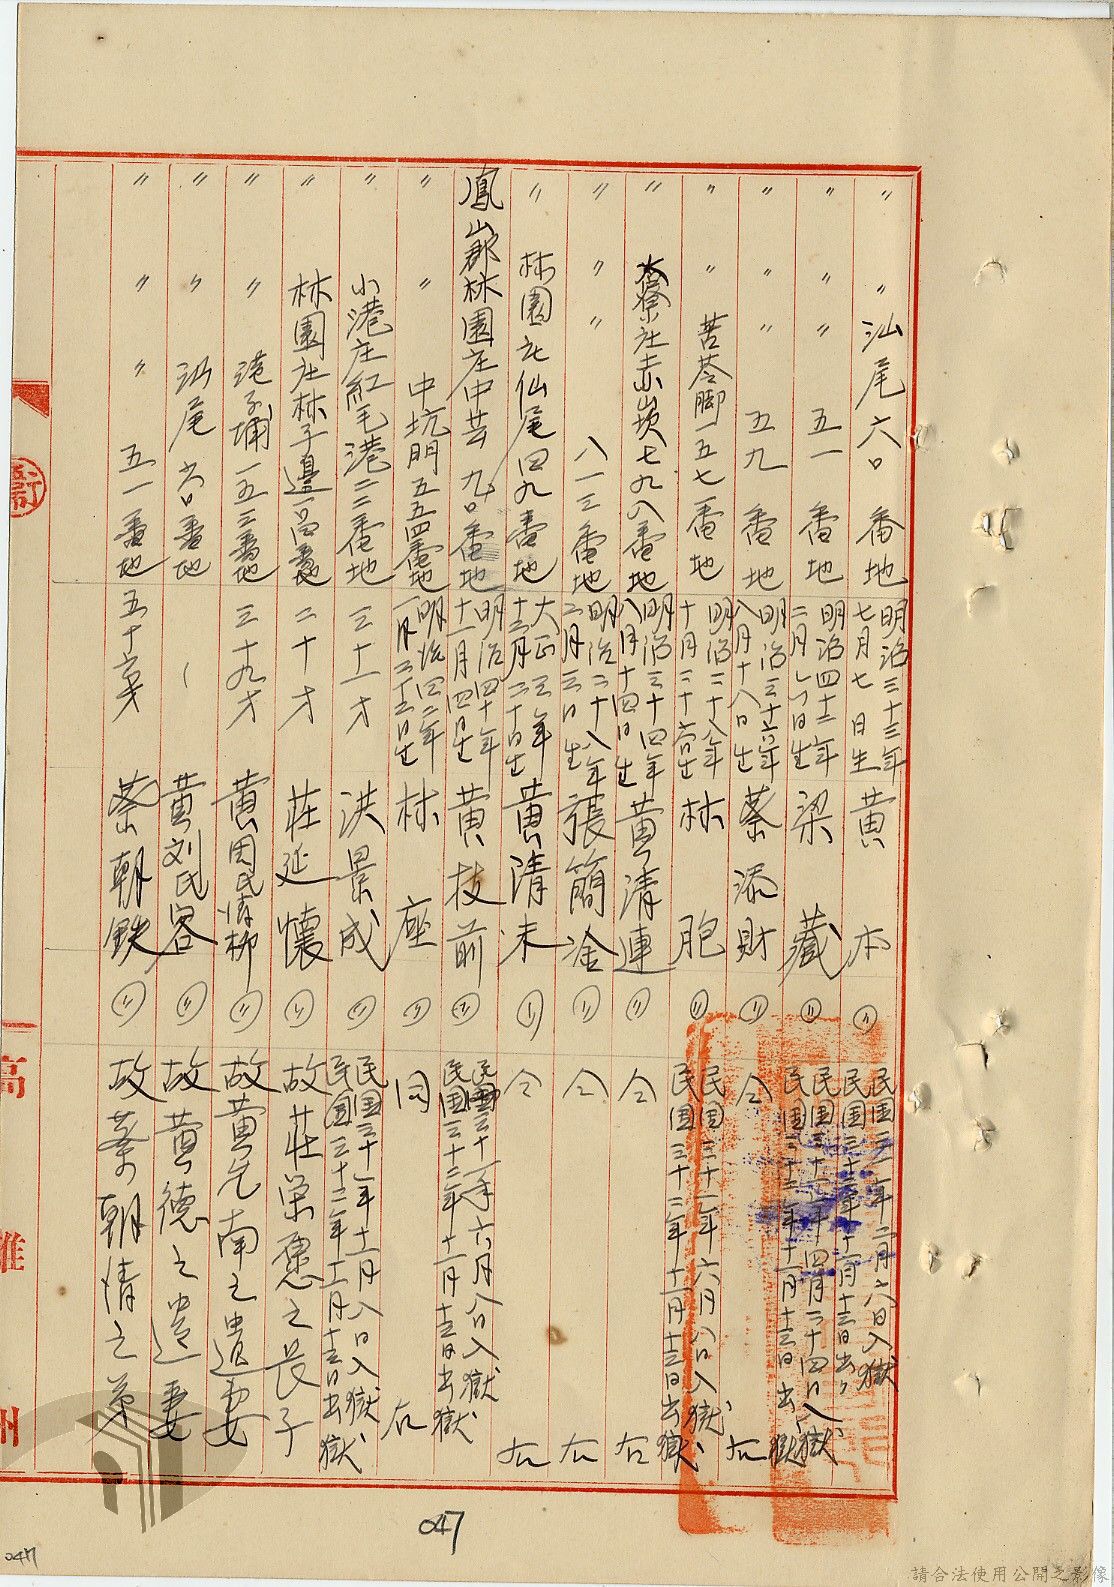 〃 〃 汕尾六〇番地 明治三十三年七月七日生 黃本 〃 民国三十一年二月六日入獄 民国三十二年十一月十三日出〃
〃 〃 〃 五一番地 明治四十二年二月一日生 梁藏 〃 民国三十一年四月二十四日入獄 民国三十二年十一月十三日出獄
〃 〃 〃 五九番地 明治三十六年八月十八日生 蔡添財 〃 仝右
〃 〃 苦苓脚一五七番地 明治二十八年十月二十六日生 林胞 〃 民国三十一年六月八日入獄、民国三十二年十一月十三日出獄
〃 大寮社赤崁七九八番地 明治三十四年八月十四日生 黃清連 〃 仝右
〃 〃 〃 八一三番地 明治二十八年二月三日生 張簡淦 〃 仝右
〃 林園庄仙尾四九番地 大正三年十二月二十日生 黃清未 〃 仝右
鳳山郡林園庄中芸九〇番地 明治四十年十一月四日生 黃枝前 〃 民国三十一年六月八日入獄 民国三十二年十一月十三日出獄
〃 〃 中坑門五五四番地 明治四二年一月二十五日生 林座 〃 同右
〃 小港庄紅毛港二二番地 三十一才 洪景成 〃 民国三十一年十一月八日入獄、民国三十二年十一月十三日出獄
〃 林園庄林子邊 番地 二十才 莊延懷 〃 故莊榮愿之長子
〃 〃 港子埔一五三番地 三十九才 黃周氏清柳 〃 故黃允南之遺妻
〃 〃 汕尾六〇番地 黃刘氏容 〃 故黃德之遺妻
〃 〃 〃 五一番地 五十六才 蔡朝鉄 〃 故蔡朝清之弟
高
雄
州
047
047
請合法使用公開之影像